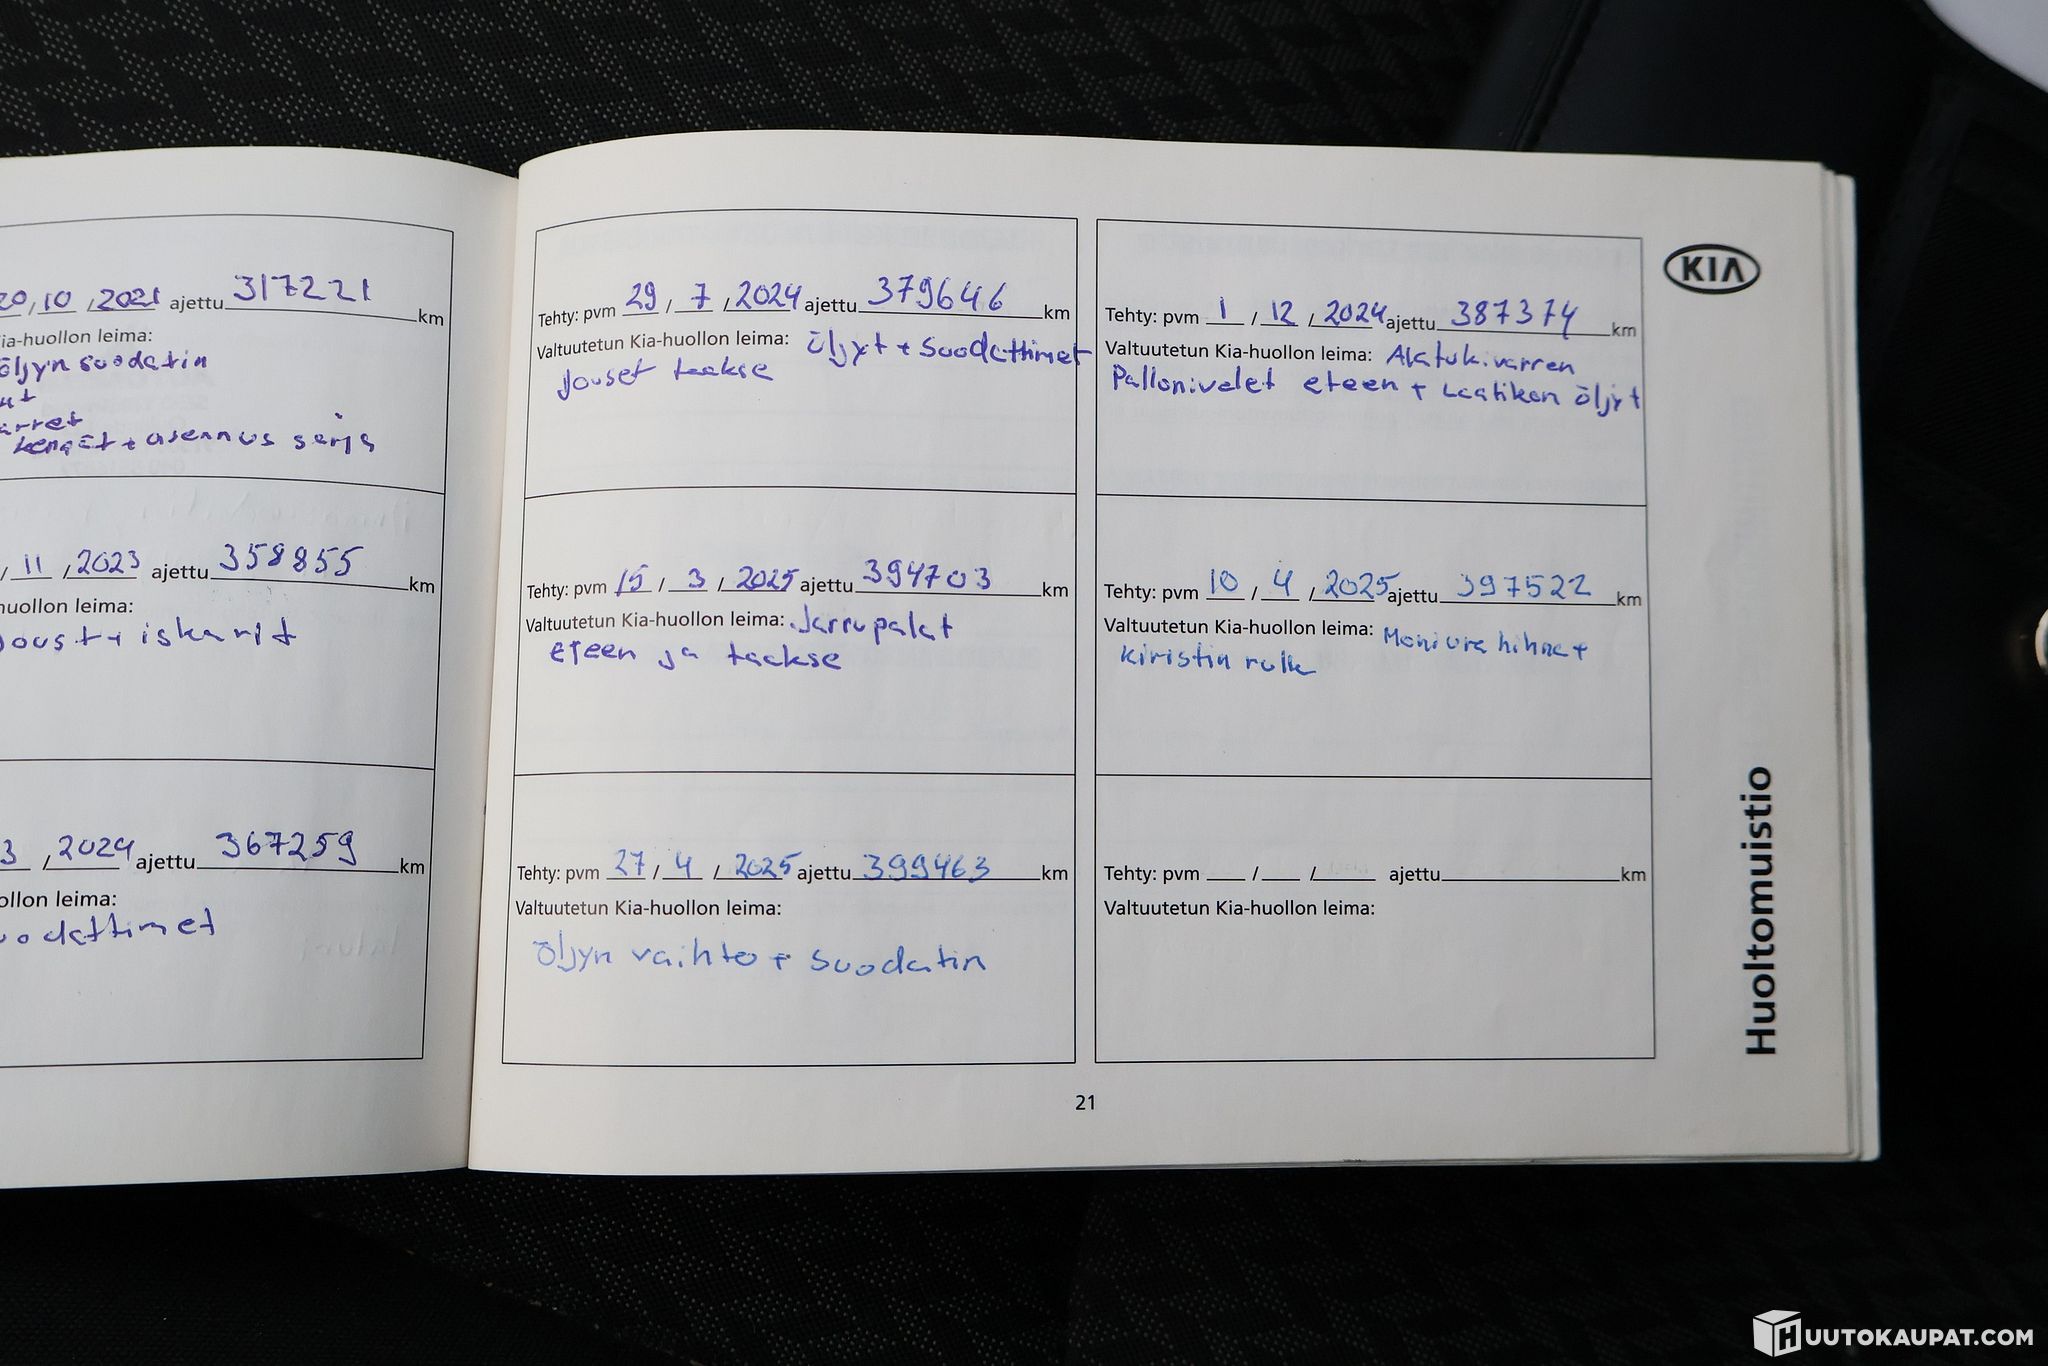 20/10/2021 ajettu 317221 km
ia-huollon leima:
öljyn suodatin
arret
kengät + asennus sarja
/ 11 / 2023 ajettu 358855 km
huollon leima:
joust + iskarit
3 / 2024 ajettu 367259 km
ollon leima:
uodattimet
Tehty: pvm 29 / 7 / 2024 ajettu 379646 km
Valtuutetun Kia-huollon leima: öljyt + Suodattimet
Jouset taakse
Tehty: pvm 15 / 3 / 2025 ajettu 394703 km
Valtuutetun Kia-huollon leima: Jarrupalat
eteen ja taakse
Tehty: pvm 27 / 4 / 2025 ajettu 399463 km
Valtuutetun Kia-huollon leima:
Öljyn vaihto + suodatin
Tehty: pvm 1 / 12 / 2024 ajettu 387374 km
Valtuutetun Kia-huollon leima: Alatukivarren
Pallonivelet eteen + Laatikon öljyt
Tehty: pvm 10 / 4 / 2025 ajettu 397522 km
Valtuutetun Kia-huollon leima: Moniura hihna +
kiristin rulla
Tehty: pvm / / ajettu km
Valtuutetun Kia-huollon leima:
KIA
Huoltomuistio
21
HUUTOKAUPAT.COM